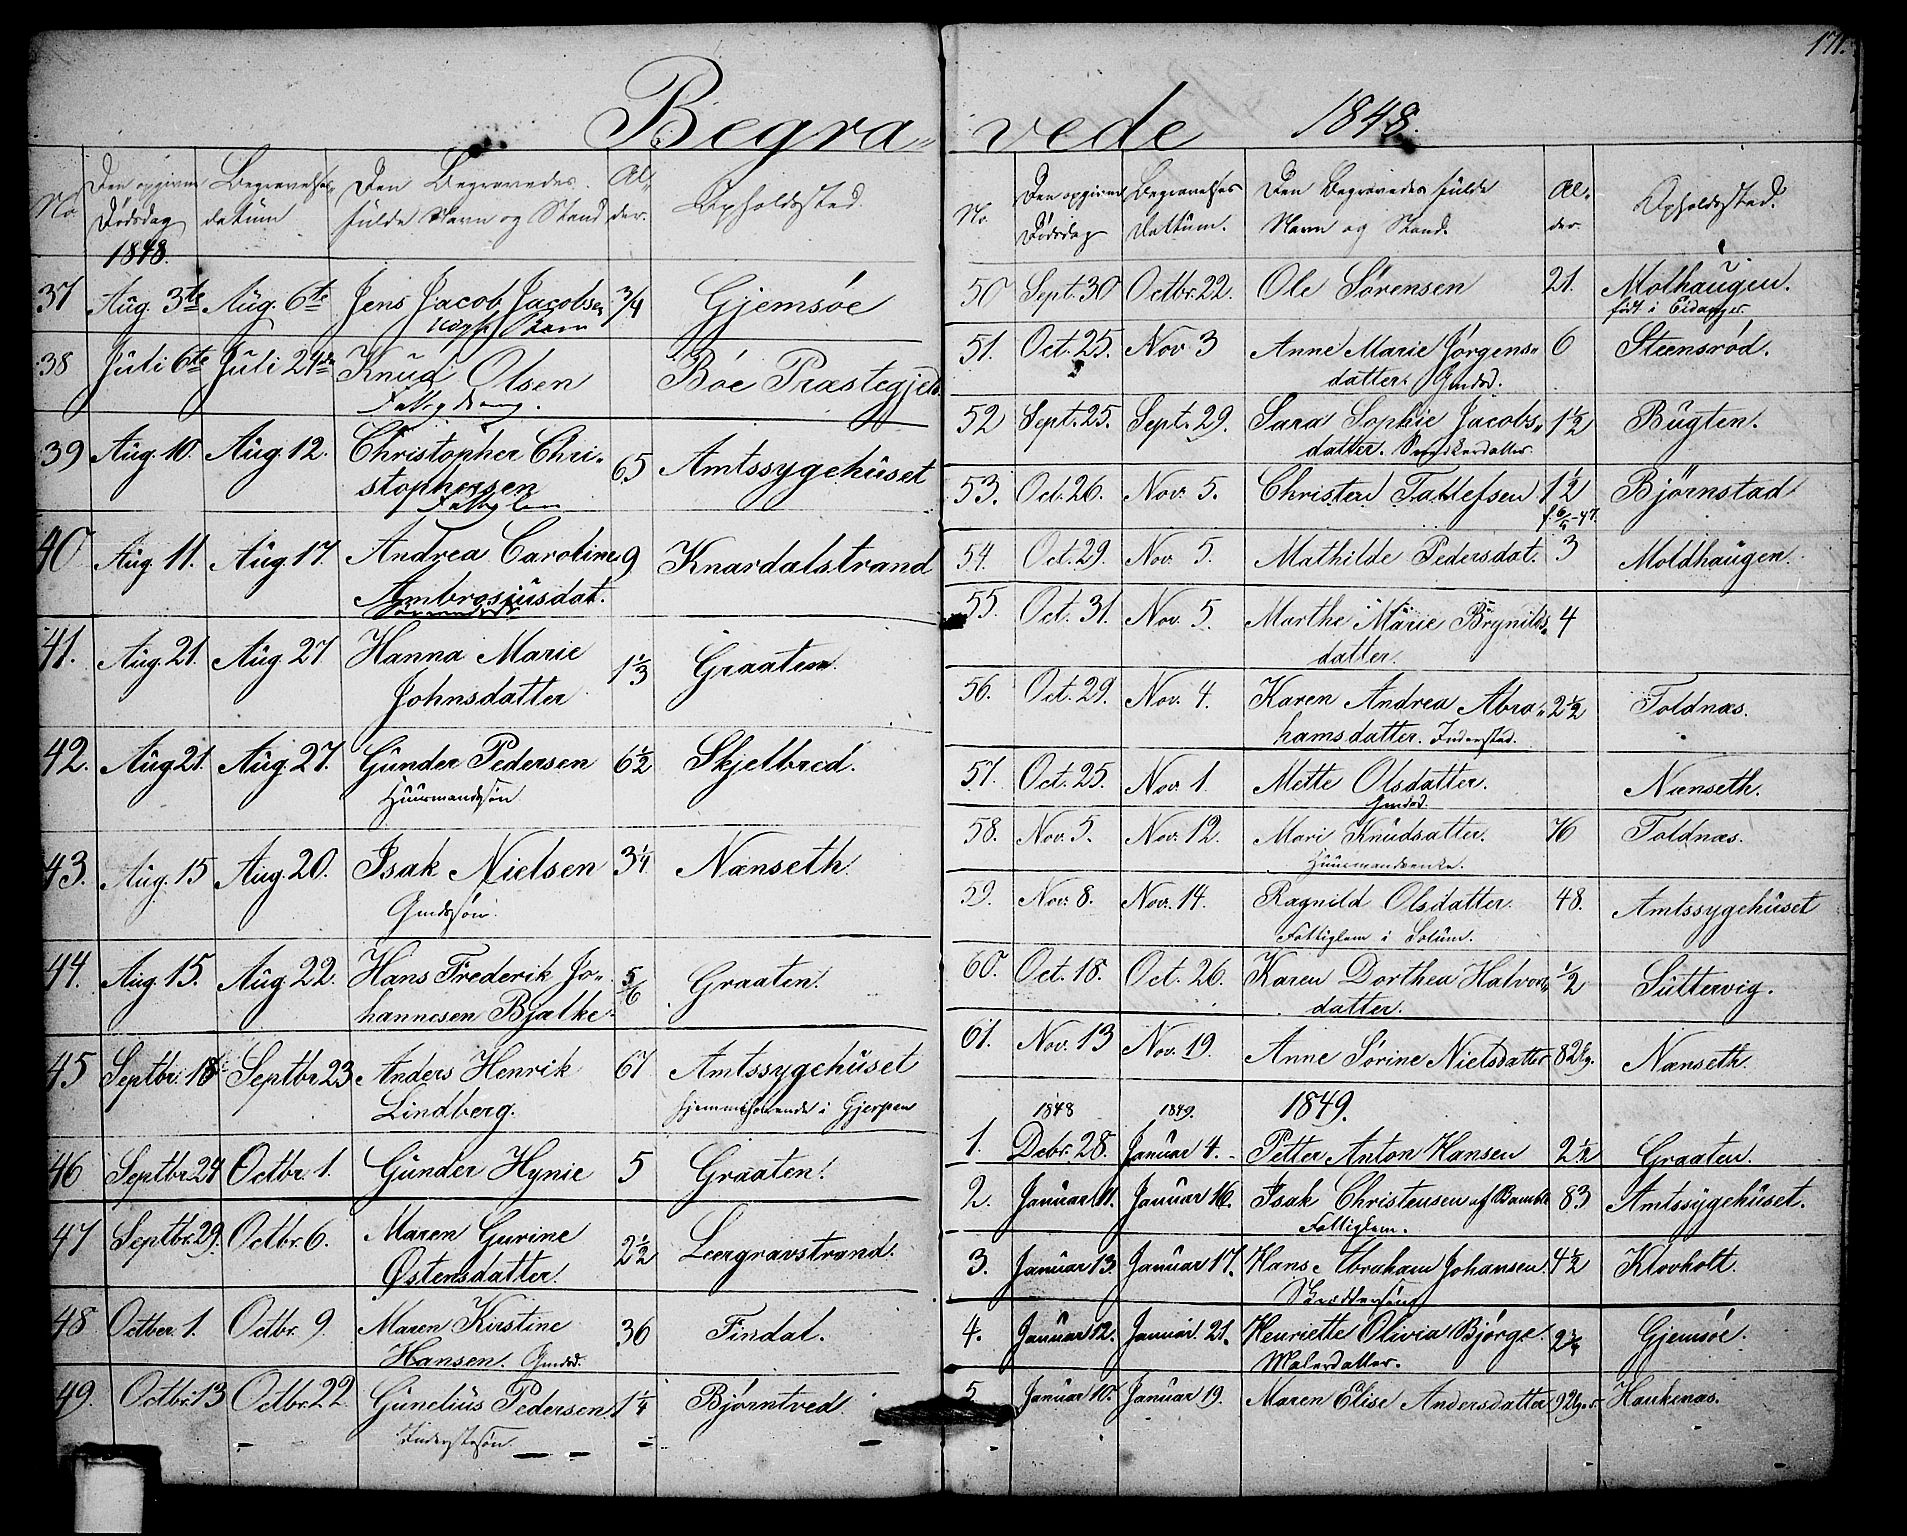 171.
Begra-
No.
Den opgivne
Dødsdag
Begravelses
datum
Den Begravedes
fulde Navn og Stand
Al-
der.
Opholdssted.
1848.
37 Aug. 3te Aug. 6te Jens Jacob Jacobsen 3/4 Gjemsøe
38 Juli 6te Juli 24de Knud Olsen Böe Præstegjeld
39 Aug. 10. Aug 12. Christopher Chri- 65 Amtssygehuset
stophersen
Fattiglem
40 Aug. 11. Aug. 17. Andrea Caroline 9 Knardalstrand
Ambrosiusdat.
41. Aug. 21. Aug 27. Hanna Marie 1 1/3 Graaten.
Johnsdatter
42. Aug 21. Aug. 27. Gunder Pedersen 6 1/2 Skjelbred.
Huusmandssøn.
43. Aug. 15 Aug. 20. Isak Nielsen 3 1/4 Nænseth.
Gmdssøn.
44. Aug. 15. Aug. 22. Hans Frederik Jo- 5/6 Graaten.
hannesen Bjælke.
45 Septbr. 18 Septbr 23 Anders Henrik 67 Amtssygehüset
Lindberg. hjemmehørende i Gjerpen
46 Septbr. 24 Octbr. 1. Gunder Hynie 5 Graaten.
47 Septbr. 29. Octbr. 6. Maren Gurine 2 1/2 Leergravstrand.
Østensdatter.
48 Octber. 1. Octbr. 9. Maren Kirstine 36 Findal.
Hansen. Gmdsd.
49. Octbr. 13 Octbr. 22 Gunelius Pedersen 1 1/4 Bjørntved
Inderstesøn.
vede 1848.
No.
Den opgivne
Dødsdag
Begravelses
Dattum.
Den Begravedes fulde
Navn og Stand.
Al-
der.
Opholdssted.
50 Sept. 30 Octbr. 22. Ole Sørensen 21. Molhaugen.
født i Eidanger.
51. Oct. 25. Nov. 3 Anne Marie Jørgens- 6 Steensrød.
datter. Gmdsd.
52 Sept. 25. Sept. 29. Sara Sophie Jacobs- 1 1/2 Bugten.
datter.
53. Oct. 26. Nov. 5. Christen Tallefsen 1 1/2 Bjørnstad
54. Oct. 29. Nov. 5. Mathilde Pedersdat. 3 Moldhaugen.
55. Oct. 31. Nov. 5. Marthe Marie Brynilds- 4
datter.
56. Oct. 29. Nov. 4. Karen Andrea Abra- 2 1/2 Toldnæs.
hamsdatter. Indersted.
57. Oct. 25. Nov. 1. Mette Olsdatter. Nænseth.
Gmdsd.
58. Nov. 5. Nov. 12. Mari Knudsatter. 76 Toldnæs.
Huusmandsenke.
59. Nov. 8. Nov. 14. Ragnild Olsdatter. 48. Amtssygehüset
Fattiglem i Solum.
60. Oct. 18. Oct. 26. Karen Dorthea Halvors- 1/2 Suttervig.
datter.
61. Nov. 13 Nov. 19. Anne Sörine Nielsdatter 82 Nænseth.
1848 1849. 1849.
1. Debr. 28. Januar 4. Petter Anton Hansen 2 1/2 Graaten.
2. Januar 11. Januar 16. Isak Christensen af Bamble 83 Amtssygehüset.
Fattiglem.
3. Januar 13. Januar 17. Hans Abraham Johansen. 4 1/2 Klovholt.
4. Januar 12. Januar 21. Henriette Olivia Bjørge. Gjemsøe.
Malerdatter.
5. Januar 10. Januar 19. Maren Elise Andersdatter Haukenæs.